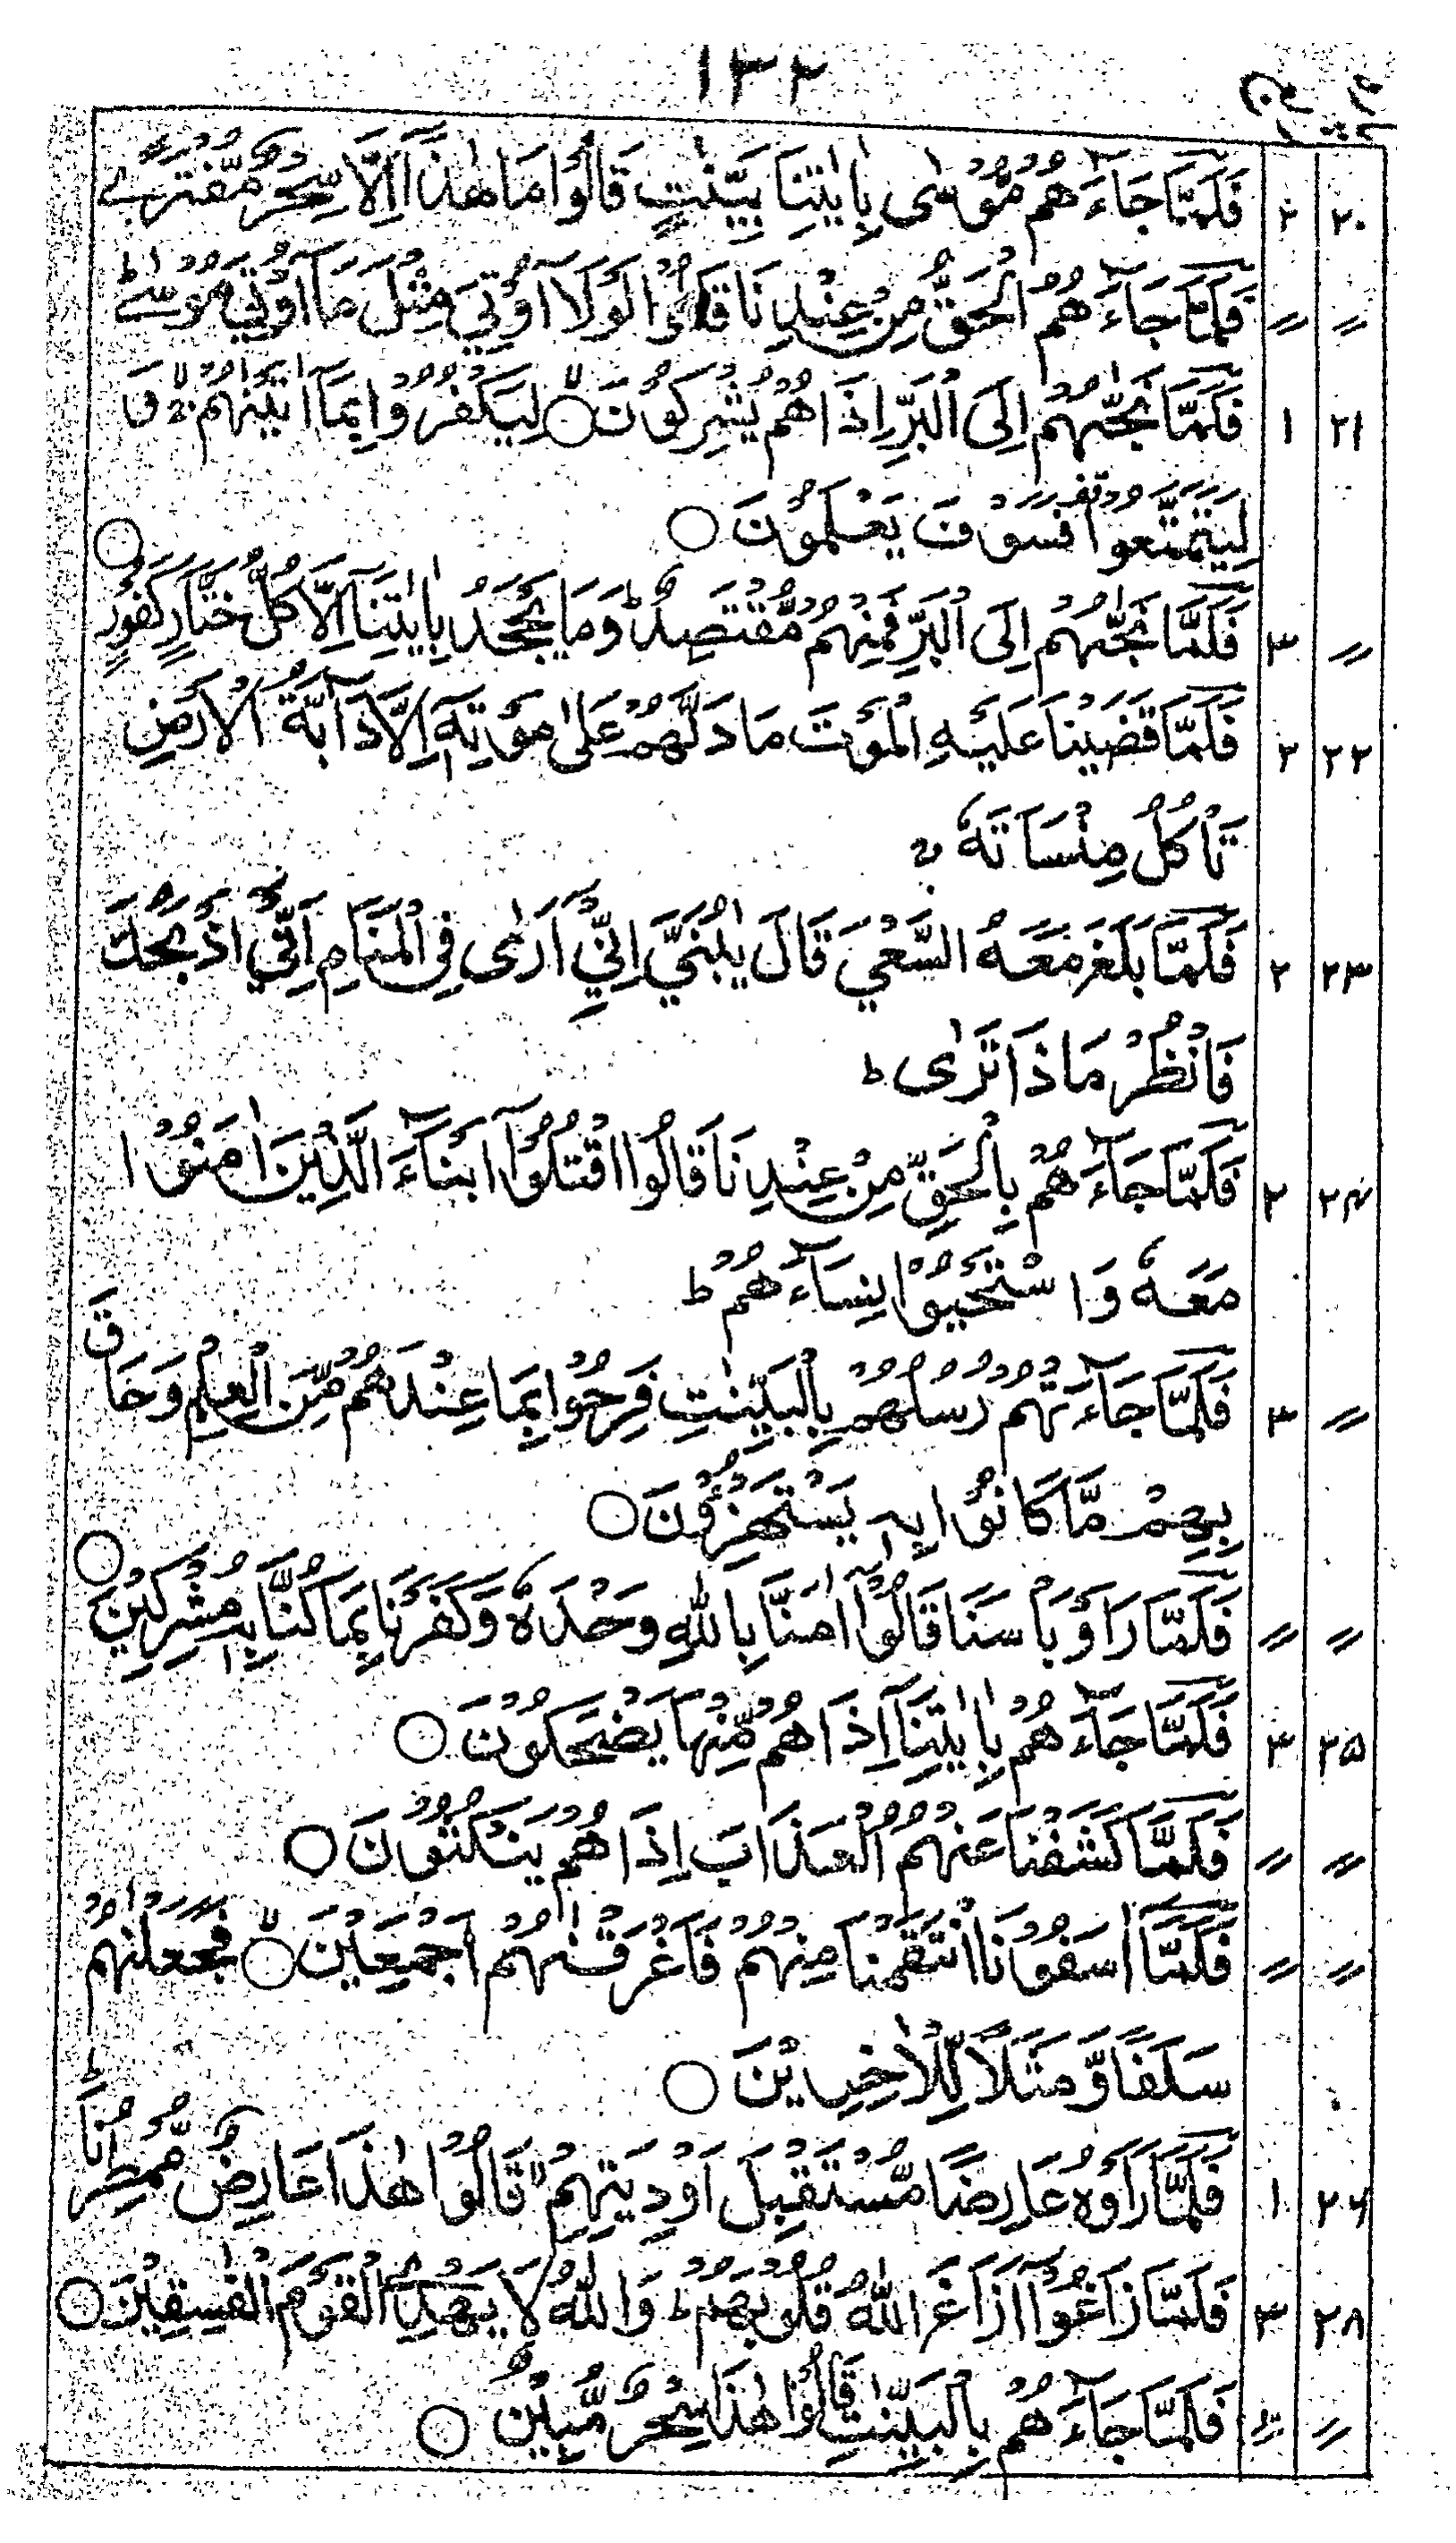 ١٣٢
٢٠ ٢ فَلَمَّا جَآءَهُمْ مُّوْسٰى بِاٰيٰتِنَا بَيِّنٰتٍ قَالُوْا مَا هٰذَآ اِلَّا سِحْرٌ مُّفْتَرًے
〃 〃 فَلَمَّا جَآءَهُمُ الْحَقُّ مِنْ عِنْدِنَا قَالُوْا لَوْلَآ اُوْتِيَ مِثْلَ مَآ اُوْتِيَ مُوْسٰے ط
٢١ ١ فَلَمَّا نَجّٰهُمْ اِلَى الْبَرِّ اِذَا هُمْ يُشْرِكُوْنَ ○ لا لِيَكْفُرُوْا بِمَآ اٰتَيْنٰهُمْ ۙ وَ
لِيَتَمَتَّعُوْا فَسَوْفَ يَعْلَمُوْنَ ○
〃 ٣ فَلَمَّا نَجّٰهُمْ اِلَى الْبَرِّ فَمِنْهُمْ مُّقْتَصِدٌ ط وَمَا يَجْحَدُ بِاٰيٰتِنَآ اِلَّا كُلُّ خَتَّارٍ كَفُوْرٍ ○
٢٢ ٢ فَلَمَّا قَضَيْنَا عَلَيْهِ الْمَوْتَ مَا دَلَّهُمْ عَلٰى مَوْتِهٖٓ اِلَّا دَآبَّةُ الْاَرْضِ
تَاْكُلُ مِنْسَاَتَهٗ ۚ
٢٣ ٢ فَلَمَّا بَلَغَ مَعَهُ السَّعْيَ قَالَ يٰبُنَيَّ اِنِّيْٓ اَرٰى فِى الْمَنَامِ اَنِّيْٓ اَذْبَحُكَ
فَانْظُرْ مَاذَا تَرٰى ط
٢٤ ٣ فَلَمَّا جَآءَهُمْ بِالْحَقِّ مِنْ عِنْدِنَا قَالُوا اقْتُلُوْٓا اَبْنَآءَ الَّذِيْنَ اٰمَنُوْا
مَعَهٗ وَاسْتَحْيُوْا نِسَآءَهُمْ ط
〃 ٣ فَلَمَّا جَآءَتْهُمْ رُسُلُهُمْ بِالْبَيِّنٰتِ فَرِحُوْا بِمَا عِنْدَهُمْ مِّنَ الْعِلْمِ وَحَاقَ
بِهِمْ مَّا كَانُوْا بِهٖ يَسْتَهْزِءُوْنَ ○
〃 〃 فَلَمَّا رَاَوْا بَاْسَنَا قَالُوْٓا اٰمَنَّا بِاللّٰهِ وَحْدَهٗ وَكَفَرْنَا بِمَا كُنَّا بِهٖ مُشْرِكِيْنَ ○
٢٥ ٣ فَلَمَّا جَآءَهُمْ بِاٰيٰتِنَآ اِذَا هُمْ مِّنْهَا يَضْحَكُوْنَ ○
〃 〃 فَلَمَّا كَشَفْنَا عَنْهُمُ الْعَذَابَ اِذَا هُمْ يَنْكُثُوْنَ ○
〃 〃 فَلَمَّآ اٰسَفُوْنَا انْتَقَمْنَا مِنْهُمْ فَاَغْرَقْنٰهُمْ اَجْمَعِيْنَ ○ لا فَجَعَلْنٰهُمْ
سَلَفًا وَّمَثَلًا لِّلْاٰخِرِيْنَ ○
٢٦ ١ فَلَمَّا رَاَوْهُ عَارِضًا مُّسْتَقْبِلَ اَوْدِيَتِهِمْ لا قَالُوْا هٰذَا عَارِضٌ مُّمْطِرُنَا ط
٢٨ ٣ فَلَمَّا زَاغُوْٓا اَزَاغَ اللّٰهُ قُلُوْبَهُمْ ط وَاللّٰهُ لَا يَهْدِى الْقَوْمَ الْفٰسِقِيْنَ ○
〃 〃 فَلَمَّا جَآءَهُمْ بِالْبَيِّنٰتِ قَالُوْا هٰذَا سِحْرٌ مُّبِيْنٌ ○